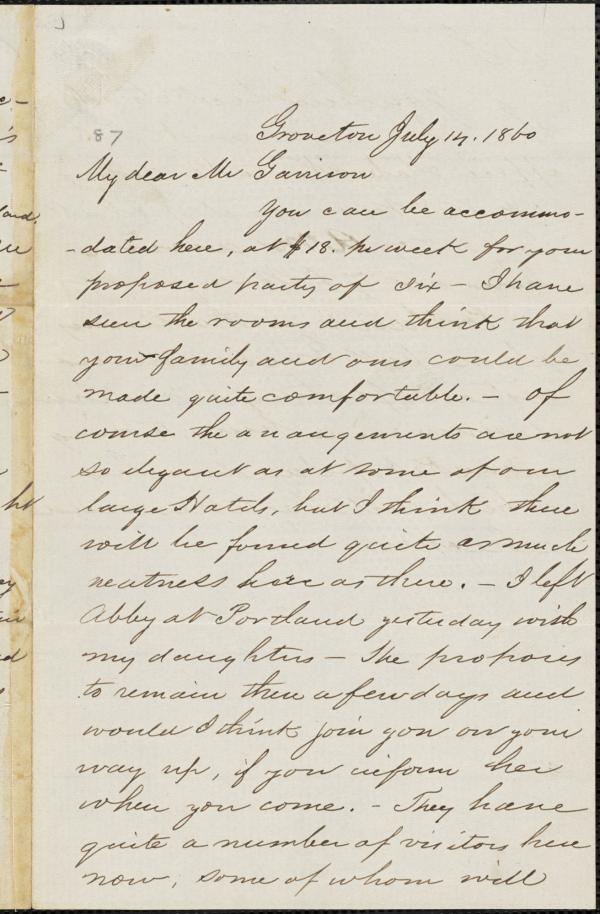 87
Groveton July 14. 1860
My dear Mr Garrison
You can be accommo-
-dated here, at $18. pr week for your
proposed party of six - I have
seen the rooms and think that
your family and ours could be
made quite comfortable. - Of
course the arrangements are not
so elegant as at some of our
large Hotels, but I think there
will be found quite as much
neatness here as there. - I left
Abby at Portland yesterday with
my daughters - She proposes
to remain there a few days and
would I think join you on your
way up, if you inform her
when you come. - They have
quite a number of visitors here
now, some of whom will